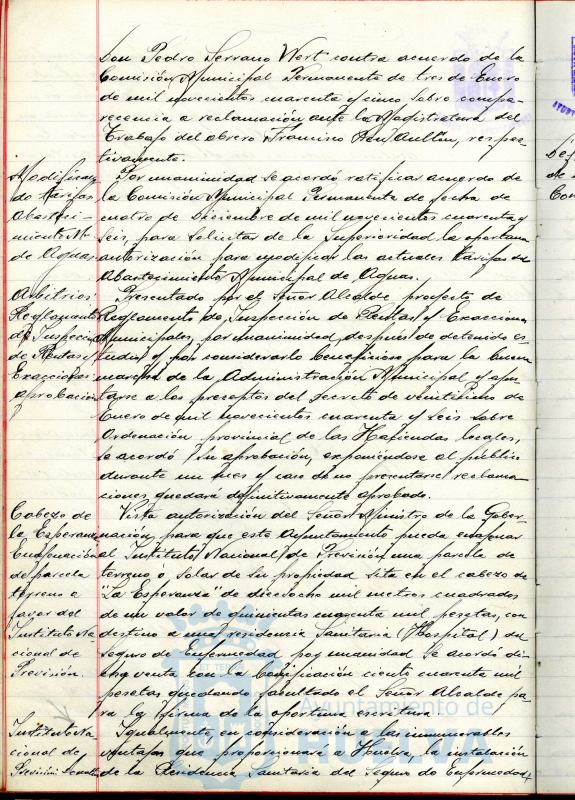 Don Pedro Serrano Wert contra acuerdo de la
Comisión Municipal Permanente de tres de Enero
de mil novecientos cuarenta y cinco sobre compa-
recencia a reclamación ante la Magistratura del
Trabajo del obrero Francisco respec-
tivamente.
Modifican-
do tarifas
Abasteci-
miento M.
de Aguas
Por unanimidad se acordó ratificar acuerdo de
la Comisión Municipal Permanente de fecha de
cuatro de Diciembre de mil novecientos cuarenta y
seis, para solicitar de la Superioridad la oportuna
autorización para modificar las actuales tarifas del
Abastecimiento Municipal de Aguas.
Arbitrios
Reglamento
de Inspección
de Rentas y
Exacciones
aprobación
Presentado por el Señor Alcalde proyecto de
Reglamento de Inspección de Rentas y Exacciones
Municipales, por unanimidad, despues de detenido es-
tudio y por considerarlo beneficioso para la buena
marcha de la Administración Municipal y ajus-
tarse a los preceptos del Decreto de veinticinco de
Enero de mil novecientos cuarenta y seis sobre
Ordenación provincial de las Haciendas locales,
se acordó su aprobación, exponiéndose al público
durante un mes y caso de no presentarse reclama-
ciones quedará definitivamente aprobado.
Cabezo de
la Esperanza
Enajenación
de parcela
terreno a
favor del
Instituto Na-
cional de
Previsión.
Vista autorización del Señor Ministro de la Gober-
nación, para que este Ayuntamiento pueda enajenar
al Instituto Nacional de Previsión una parcela de
terreno ó solar de su propiedad sita en el cabezo de
"La Esperanza" de dieciocho mil metros cuadrados
de un valor de quinientas cuarenta mil pesetas, con
destino a una residencia Sanitaria (Hospital) del
Seguro de Enfermedad por unanidad se acordó di-
cha venta con la bonificación ciento cuarenta mil
pesetas quedando facultado el Señor Alcalde pa-
ra la firma de la oportuna escritura
Instituto Na-
cional de
Previsión
Igualmente en consideración a las innumerables
ventajas que proporcionará a Huelva, la instalación
de la Residencia Sanitaria del Seguro de Enfermedad
ET TERRAE
Ayuntamiento de
HUELVA